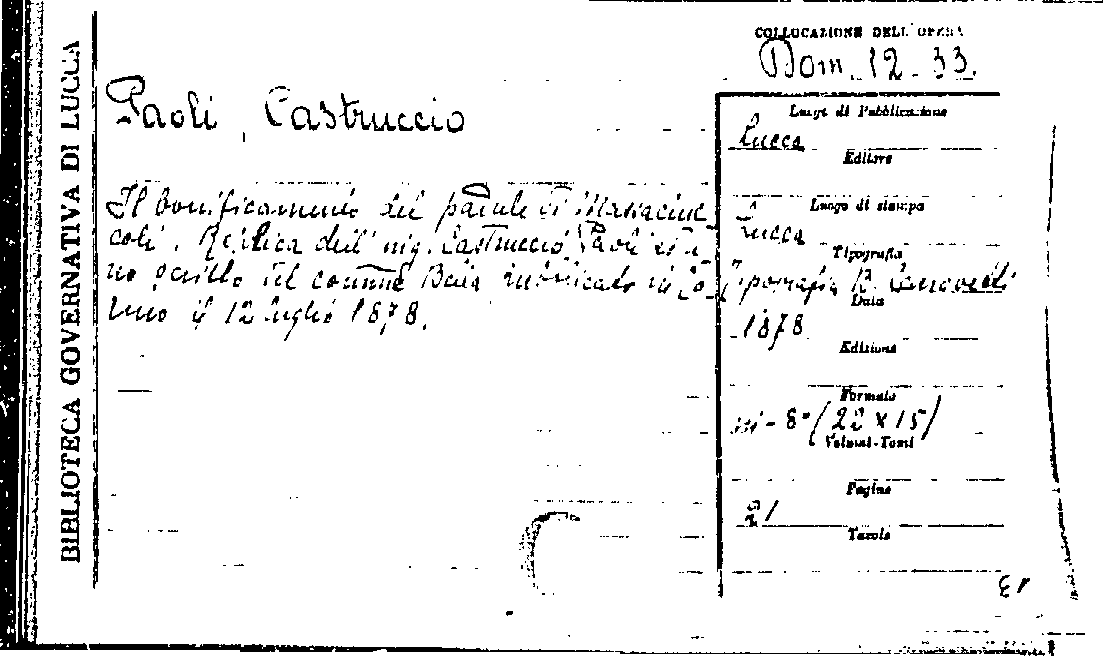 BIBLIOTECA GOVERNATIVA DI LUCCA
COLLOCAZIONE DELL'OPERA
Dom. 12. 33.
Paoli, Castruccio
Il bonificamento del padule di Massaciuc
coli. Replica dell' ing. Castruccio Paoli
no scritto del comune pubblicato in
il 12 luglio 1878.
Luogo di Pubblicazione
Lucca
Editore
Luogo di stampa
Lucca
Tipografia
Tipografia B. Canovetti
Data
1878
Edizione
Formato
in-8° (22 x 15)
Volumi-Tomi
Pagine
21
Tavole